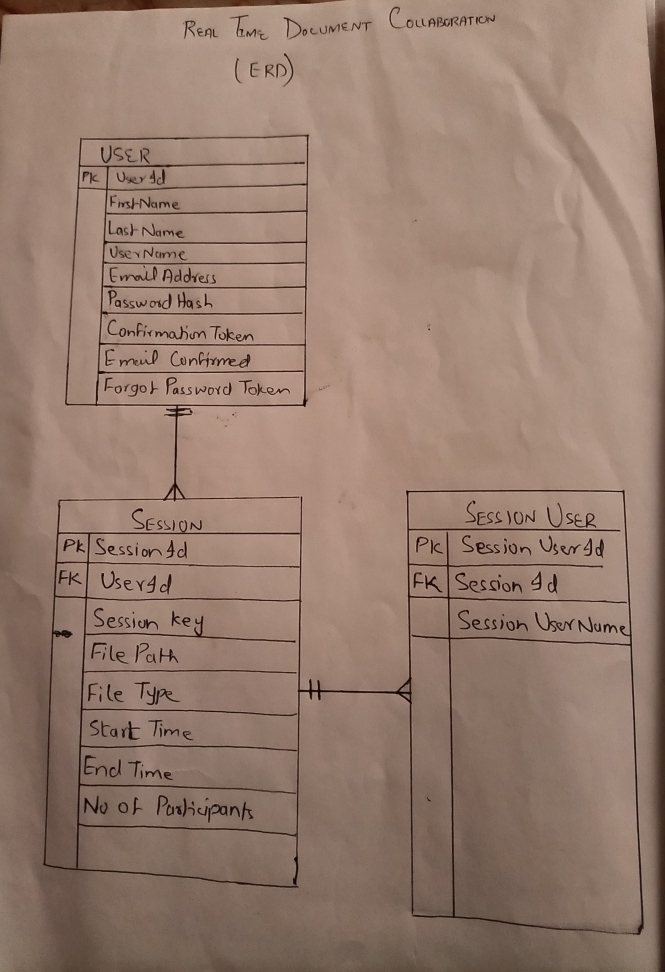 REAL TIME DOCUMENT COLLABORATION
(ERD)
USER
PK UserId
FirstName
Last Name
UserName
Email Address
Password Hash
Confirmation Token
Email Confirmed
Forgot Password Token
SESSION
PK Session Id
FK UserId
Session key
File Path
File Type
Start Time
End Time
No of Participants
SESSION USER
PK Session UserId
FK Session Id
Session UserName